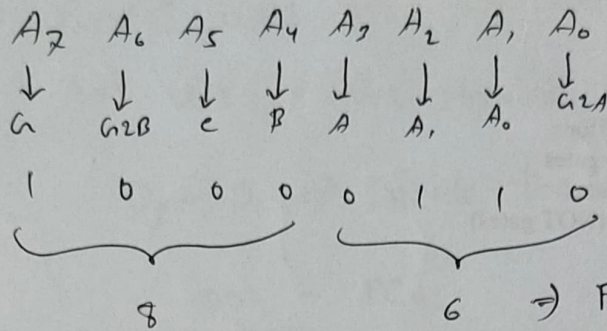 A7 A6 A5 A4 A3 A2 A1 A0
↓ ↓ ↓ ↓ ↓ ↓ ↓ ↓
G G2B C B A A1 A0 G2A
1 0 0 0 0 1 1 0
8 6 ⇒